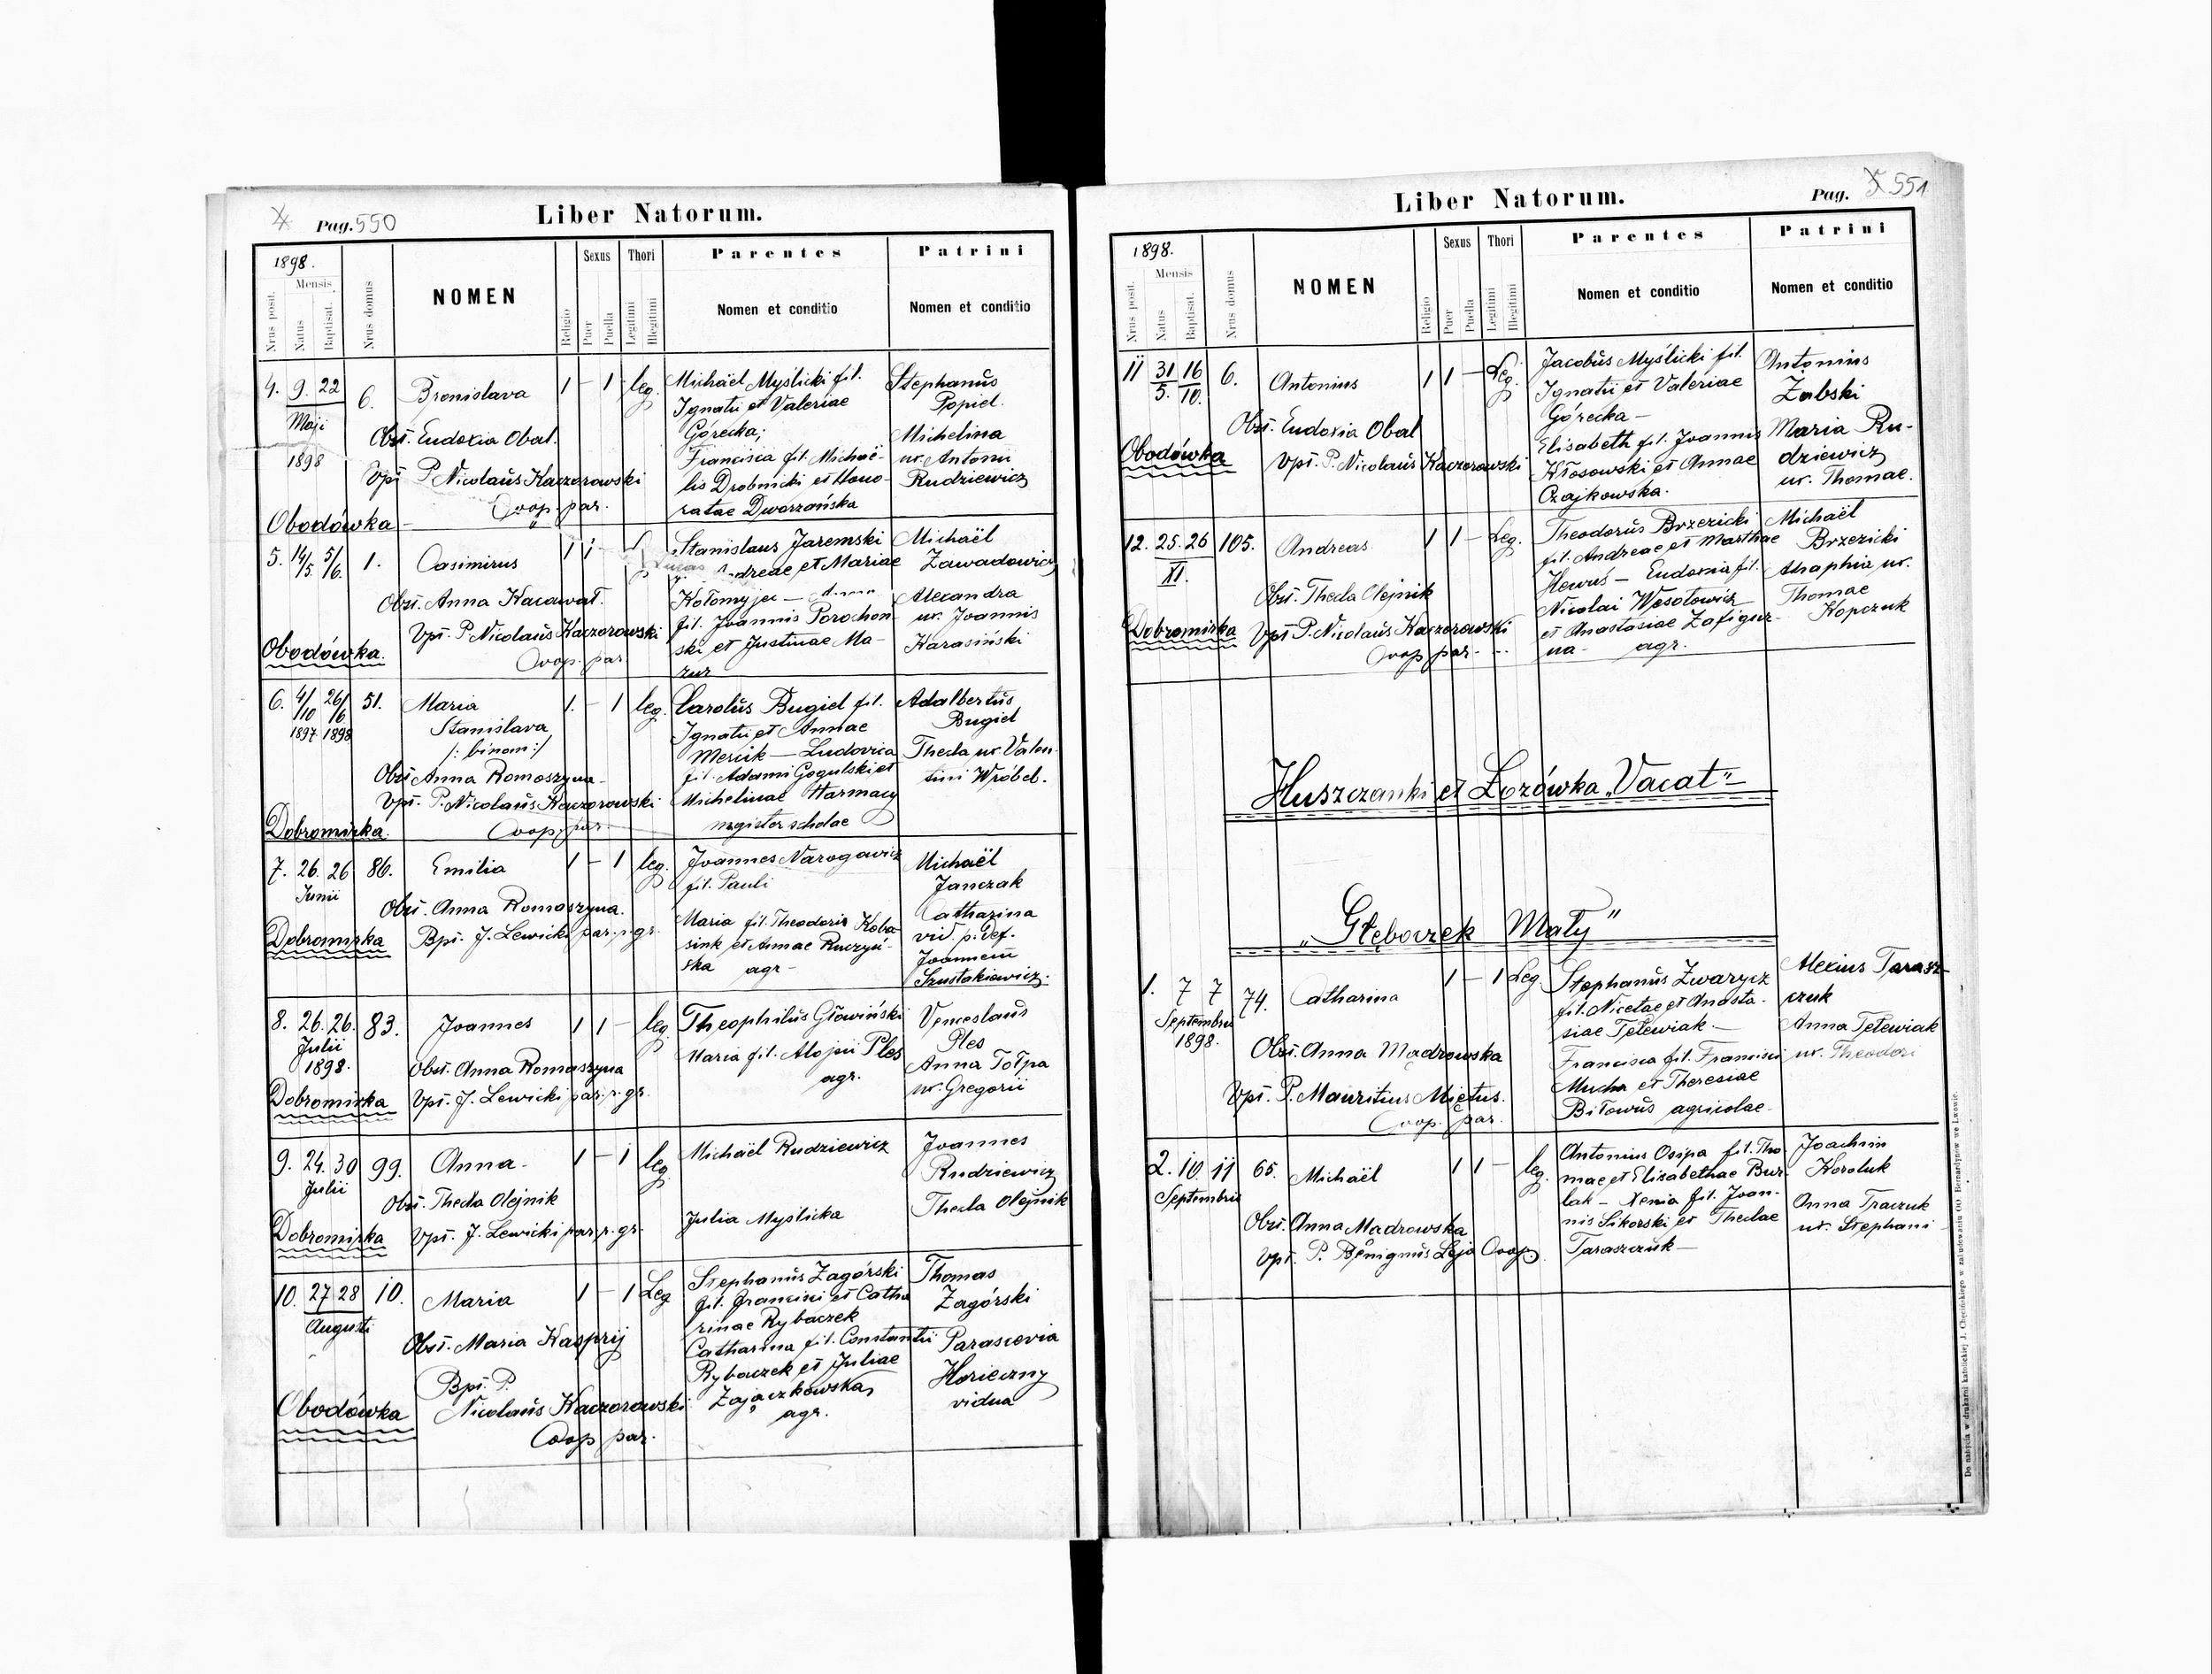 Pag. 550
Liber Natorum.
1898.
Mensis
Nrus posit.
Natus
Baptisat.
Nrus domus
NOMEN
Religio
Sexus
Puer
Puella
Thori
Legitimi
Illegitimi
Parentes
Nomen et conditio
Patrini
Nomen et conditio
4. 9. 22 Maji 1898 6. Bronislava 1 – 1 leg.
Obst. Eudoxia Obal.
Bpt. P. Nicolaus Kaczorowski
Coop. par.
Obodówka
Michaël Myślicki fil.
Ignatii et Valeriae
Górecka;
Francisca fil. Michaë-
lis Drobnicki et Hono-
ratae Dworzańska
Stephanus
Popiel.
Michelina
ux. Antonii
Rudziewicz
5. 14/5. 5/6. 1. Casimirus 1 1 –
Obst. Anna Kacawał.
Bpt. P. Nicolaus Kaczorowski
Coop. par.
Obodówka.
Stanislaus Jaremski
Andreae et Mariae
Kołomyjec —
fil. Joannis Porochon-
ski et Justinae Ma-
zur
Michaël
Zawadowicz
Alexandra
ux. Joannis
Karasiński
6. 4/10 1897 26/6 1898 51. Maria 1. – 1 leg.
Stanislava
/: binom :/
Obst. Anna Romaszyna.
Bpt. P. Nicolaus Kaczorowski
Coop. par.
Dobromirka.
Carolus Bugiel fil.
Ignatii et Annae
— Ludovica
fil. Adami Gogulski et
Michelinae Harmacy
magister scholae
Adalbertus
Bugiel
Thecla ux. Valen-
tini Wróbel.
7. 26. 26 Junii 86. Emilia 1 – 1 leg.
Obst. Anna Romaszyna.
Bpt. J. Lewicki par. r. gr.
Dobromirka
Joannes Narogowicz
fil. Pauli
Maria fil. Theodoris Koba-
sink et Annae Ruczyń-
ska agr –
Michaël
Janczak
Catharina
vid. p. def.
Joannem
Szustakiewicz.
8. 26. 26. Julii 1898. 83. Joannes 1 1 – leg
Obst. Anna Romaszyna
Bpt. J. Lewicki par. r. gr.
Dobromirka
Theophilus Głowiński
Maria fil. Alojsii Ples
agr.
Venceslaus
Ples
Anna Tołpa
ux. Gregorii
9. 24. 30 Julii 99. Anna 1 – 1 leg
Obst. Thecla Olejnik
Bpt. J. Lewicki par. r. gr.
Dobromirka
Michaël Rudziewicz
Julia Myślicka
Joannes
Rudziewicz
Thecla Olejnik
10. 27 28 Augusti 10. Maria 1 – 1 Leg
Obst. Maria Kasprij
Bpt. P.
Nicolaus Kaczorowski
Coop. par.
Obodówka
Stephanus Zagórski
fil. Francisci et Catha
rinae Rybaczek
Catharina fil. Constantii
Rybaczek et Juliae
Zajączkowska
agr.
Thomas
Zagórski
Parascevia
Horieczny
vidua
Liber Natorum.
Pag. 551
1898.
Mensis
Nrus posit.
Natus
Baptisat.
Nrus domus
NOMEN
Religio
Sexus
Puer
Puella
Thori
Legitimi
Illegitimi
Parentes
Nomen et conditio
Patrini
Nomen et conditio
11 31/5. 16/10. 6. Antonius 1 1 – Leg.
Obst. Eudoxia Obal
Bpt. P. Nicolaus Kaczorowski
Obodówka
Jacobus Myślicki fil.
Ignatii et Valeriae
Górecka –
Elisabeth fil. Joannis
Kłosowski et Annae
Czajkowska.
Antonius
Żabski
Maria Ru-
dziewicz
ux. Thomae.
12. 25. 26 XI. 105. Andreas. 1 1 – Leg.
Obst. Thecla Olejnik
Bpt. P. Nicolaus Kaczorowski
Coop. par.
Dobromirka
Theodorus Brzezicki
fil. Andreae et Marthae
Hewus – Eudoxia fil.
Nicolai Wesołowicz
et Anastasiae Zafigur-
na- agr.
Michaël
Brzezicki
Ahaphia ux.
Thomae
Kopczuk
Huszczanki et Łozówka „Vacat"
„Głęboczek Mały"
1. 7 7 Septembris 1898. 74. Catharina 1 – 1 Leg
Obst. Anna Mądrowska
Bpt. P. Mauritius Miętus.
Coop. par.
Stephanus Zwarycz
fil. Nicetae et Anasta-
siae Tetewiak. –
Francisca fil. Francisci
Mucha et Theresiae
Biłowus agricolae
Alexius Tarasz-
czuk
Anna Tetewiak
ux. Theodori
2. 10 11 Septembris 65. Michaël 1 1 – leg
Obst. Anna Madrowska
Bpt. P. Benignus Leja Coop.
Antonius Osipa fil. Tho
mae et Elisabethae Bur-
lak – Xenia fil. Joan-
nis Sikorski et Theclae
Taraszczuk –
Joachim
Koroluk
Anna Traczuk
ux. Stephani
Do nabycia w drukarni katolickiej J. Chęcińskiego w zabudowaniu OO. Bernardynów we Lwowie.